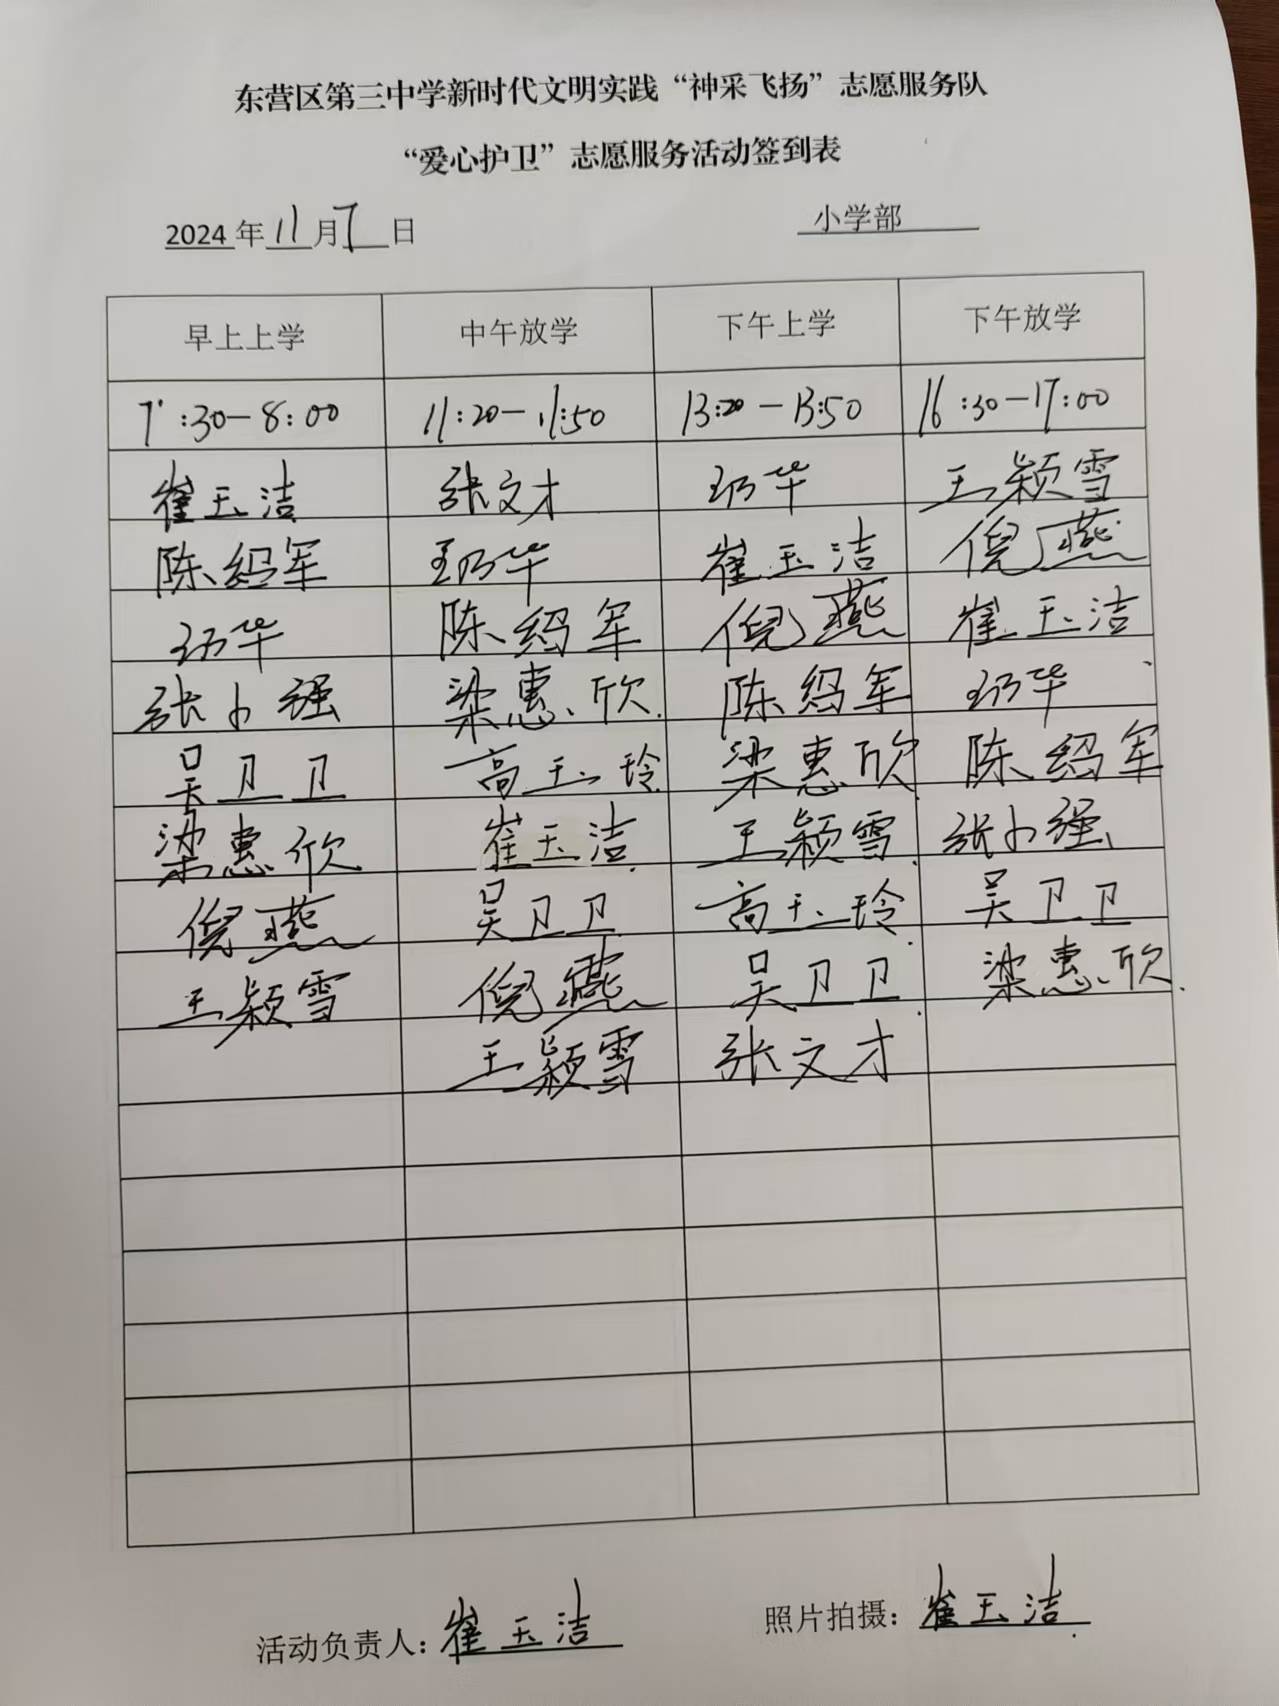 东营区第三中学新时代文明实践“神采飞扬”志愿服务队
“爱心护卫”志愿服务活动签到表
2024 年 11 月 7 日 小学部
早上上学 中午放学 下午上学 下午放学
7:30-8:00 11:20-11:50 13:20-13:50 16:30-17:00
崔玉洁 张文才 华 王颖雪
陈绍军 华 崔玉洁 倪燕
华 陈绍军 倪燕 崔玉洁
张小强 梁惠欣 陈绍军 华
吴卫卫 高玉玲 梁惠欣 陈绍军
梁惠欣 崔玉洁 王颖雪 张小强
倪燕 吴卫卫 高玉玲 吴卫卫
王颖雪 倪燕 吴卫卫 梁惠欣
王颖雪 张文才
活动负责人：崔玉洁 照片拍摄：崔玉洁